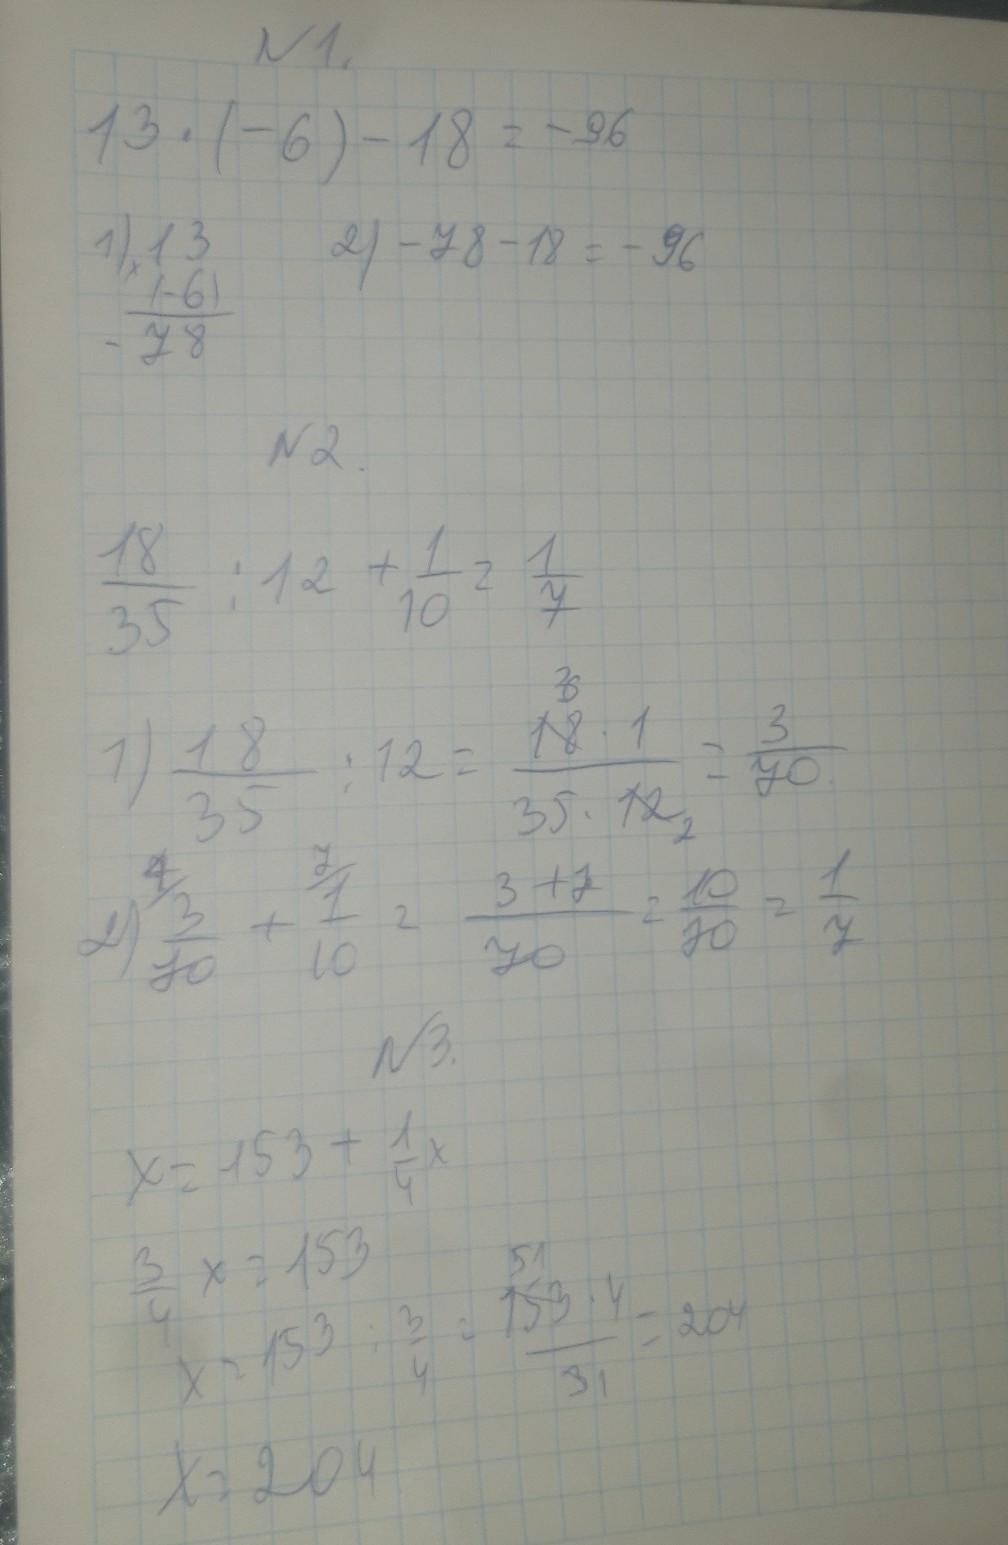 N1.
13 · (-6) - 18 = -96
1) × 13
(-6)
-78
2) -78 - 18 = -96
N2.
18/35 : 12 + 1/10 = 1/7
1) 18/35 : 12 = 18 · 1 / 35 · 12 2 = 3/70
2) 3/70 + 7/ 1/10 = 3+7/70 = 10/70 = 1/7
N3.
x = 153 + 1/4 x
3/4 x = 153
x = 153 : 3/4 = 51 153 · 4 / 3 1 = 204
x = 204